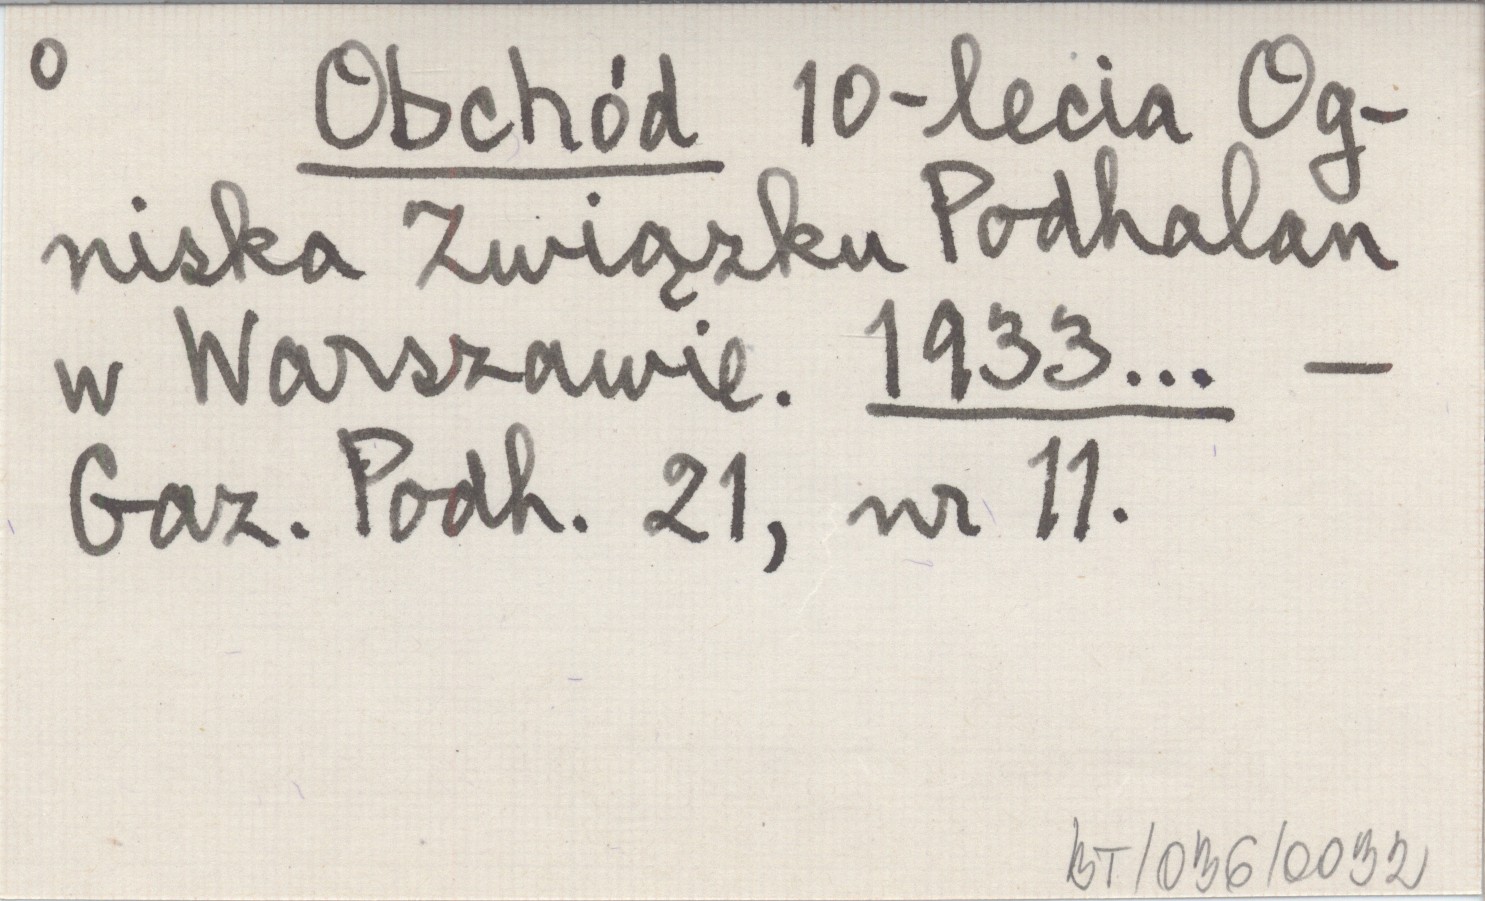 o Obchód 10-lecia Og-
niska Związku Podhalan
w Warszawie. 1933... —
Gaz. Podh. 21, nr 11.
BT/036/0032